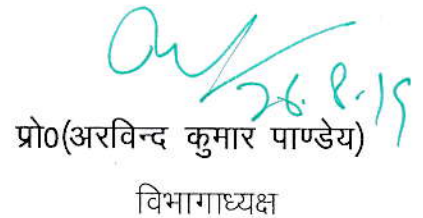 26.8.19
प्रो0(अरविन्द कुमार पाण्डेय)
विभागाध्यक्ष